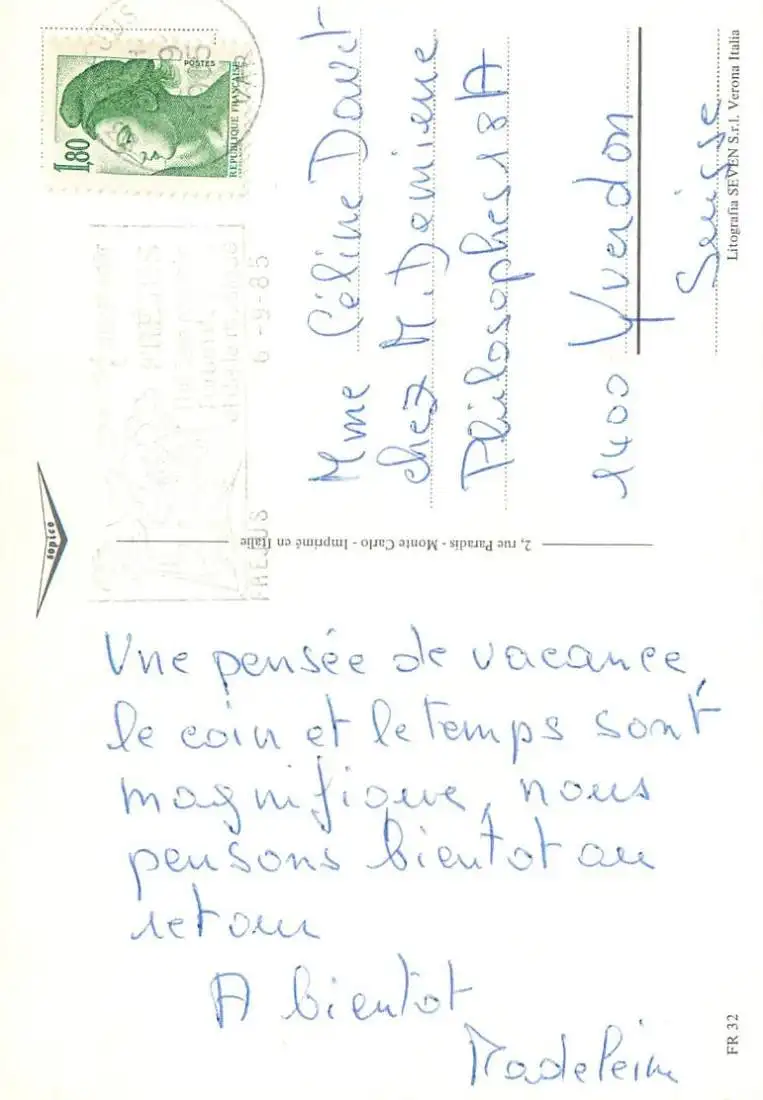 Une pensée de vacance,
le coin et le temps sont
magnifique, nous
pensons bientot au
retour
A bientot
Madeleine
Mme Céline Davet
chez M.
Philosophes 18A
1400 Yverdon
Suisse
POSTES
1,80
REPUBLIQUE FRANÇAISE
VAR
FREJUS
6-9-85
FREJUS
sopico
2, rue Paradis - Monte Carlo - Imprimé en Italie
Litografia SEVEN S.r.l. Verona Italia
FR 32